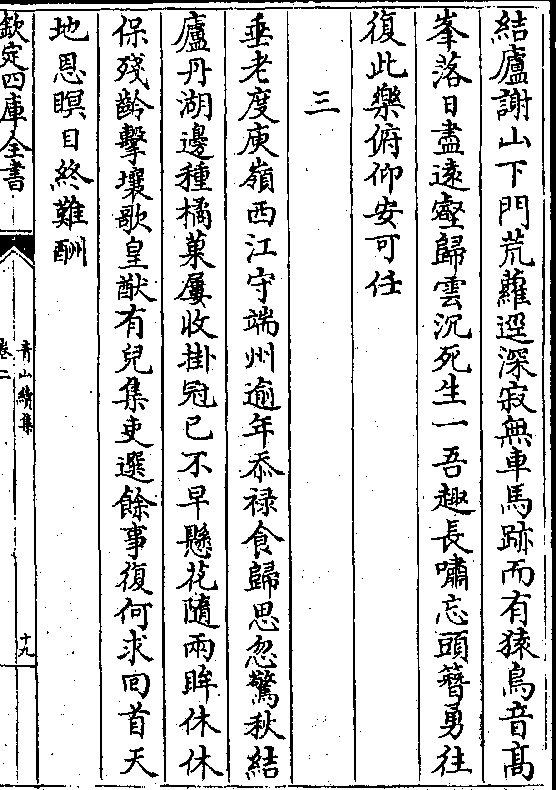 結廬謝山下門荒蘿逕深寂無車馬跡而有猿鳥音高
峯落日盡遠壑歸雲沉死生一吾趣長嘯忘頭簪勇往
復此樂俯仰安可任
三
垂老度庾嶺西江守端州逾年忝禄食歸思忽驚秋結
廬丹湖邊種橘菓屢收掛冠已不早懸花隨兩眸休休
保殘齡擊壤歌皇猷有兒集吏選餘事復何求回首天
地恩瞑目終難酬
欽定四庫全書
青山續集
卷二
十九